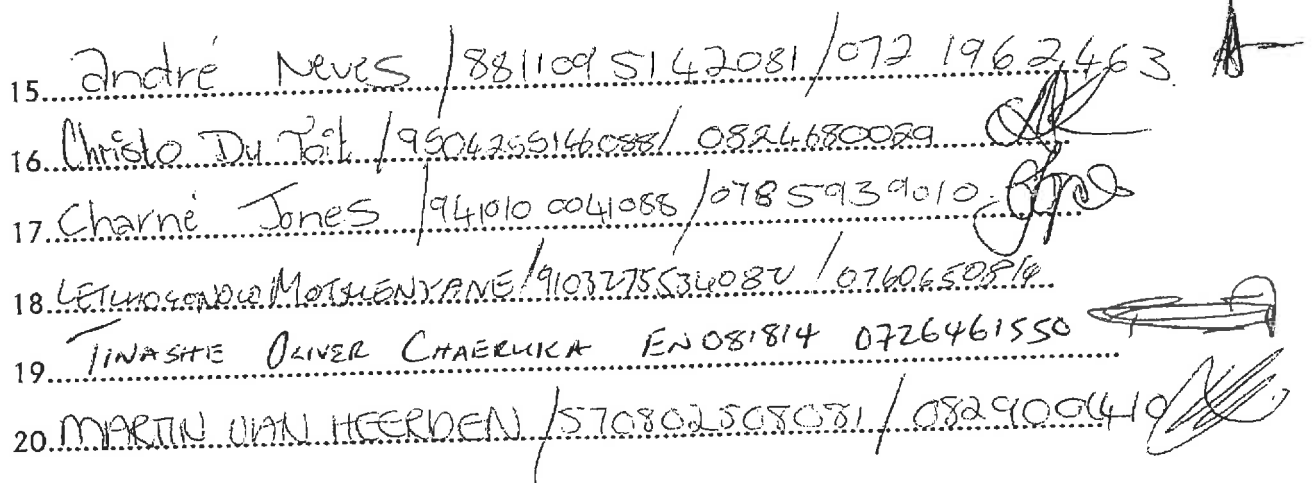 15. André Neves / 8811095142081 / 072 1962463
16. Christo Du Toit / 9504255146088 / 0824680029
17. Charné Jones / 9410100041088 / 0785939010
18. / 910327553408 / 
19. TINASHE OLIVER CHAERUKA EN081814 0726461550
20. MARTIN VAN HEERDEN / 570802508081 / 0829004410